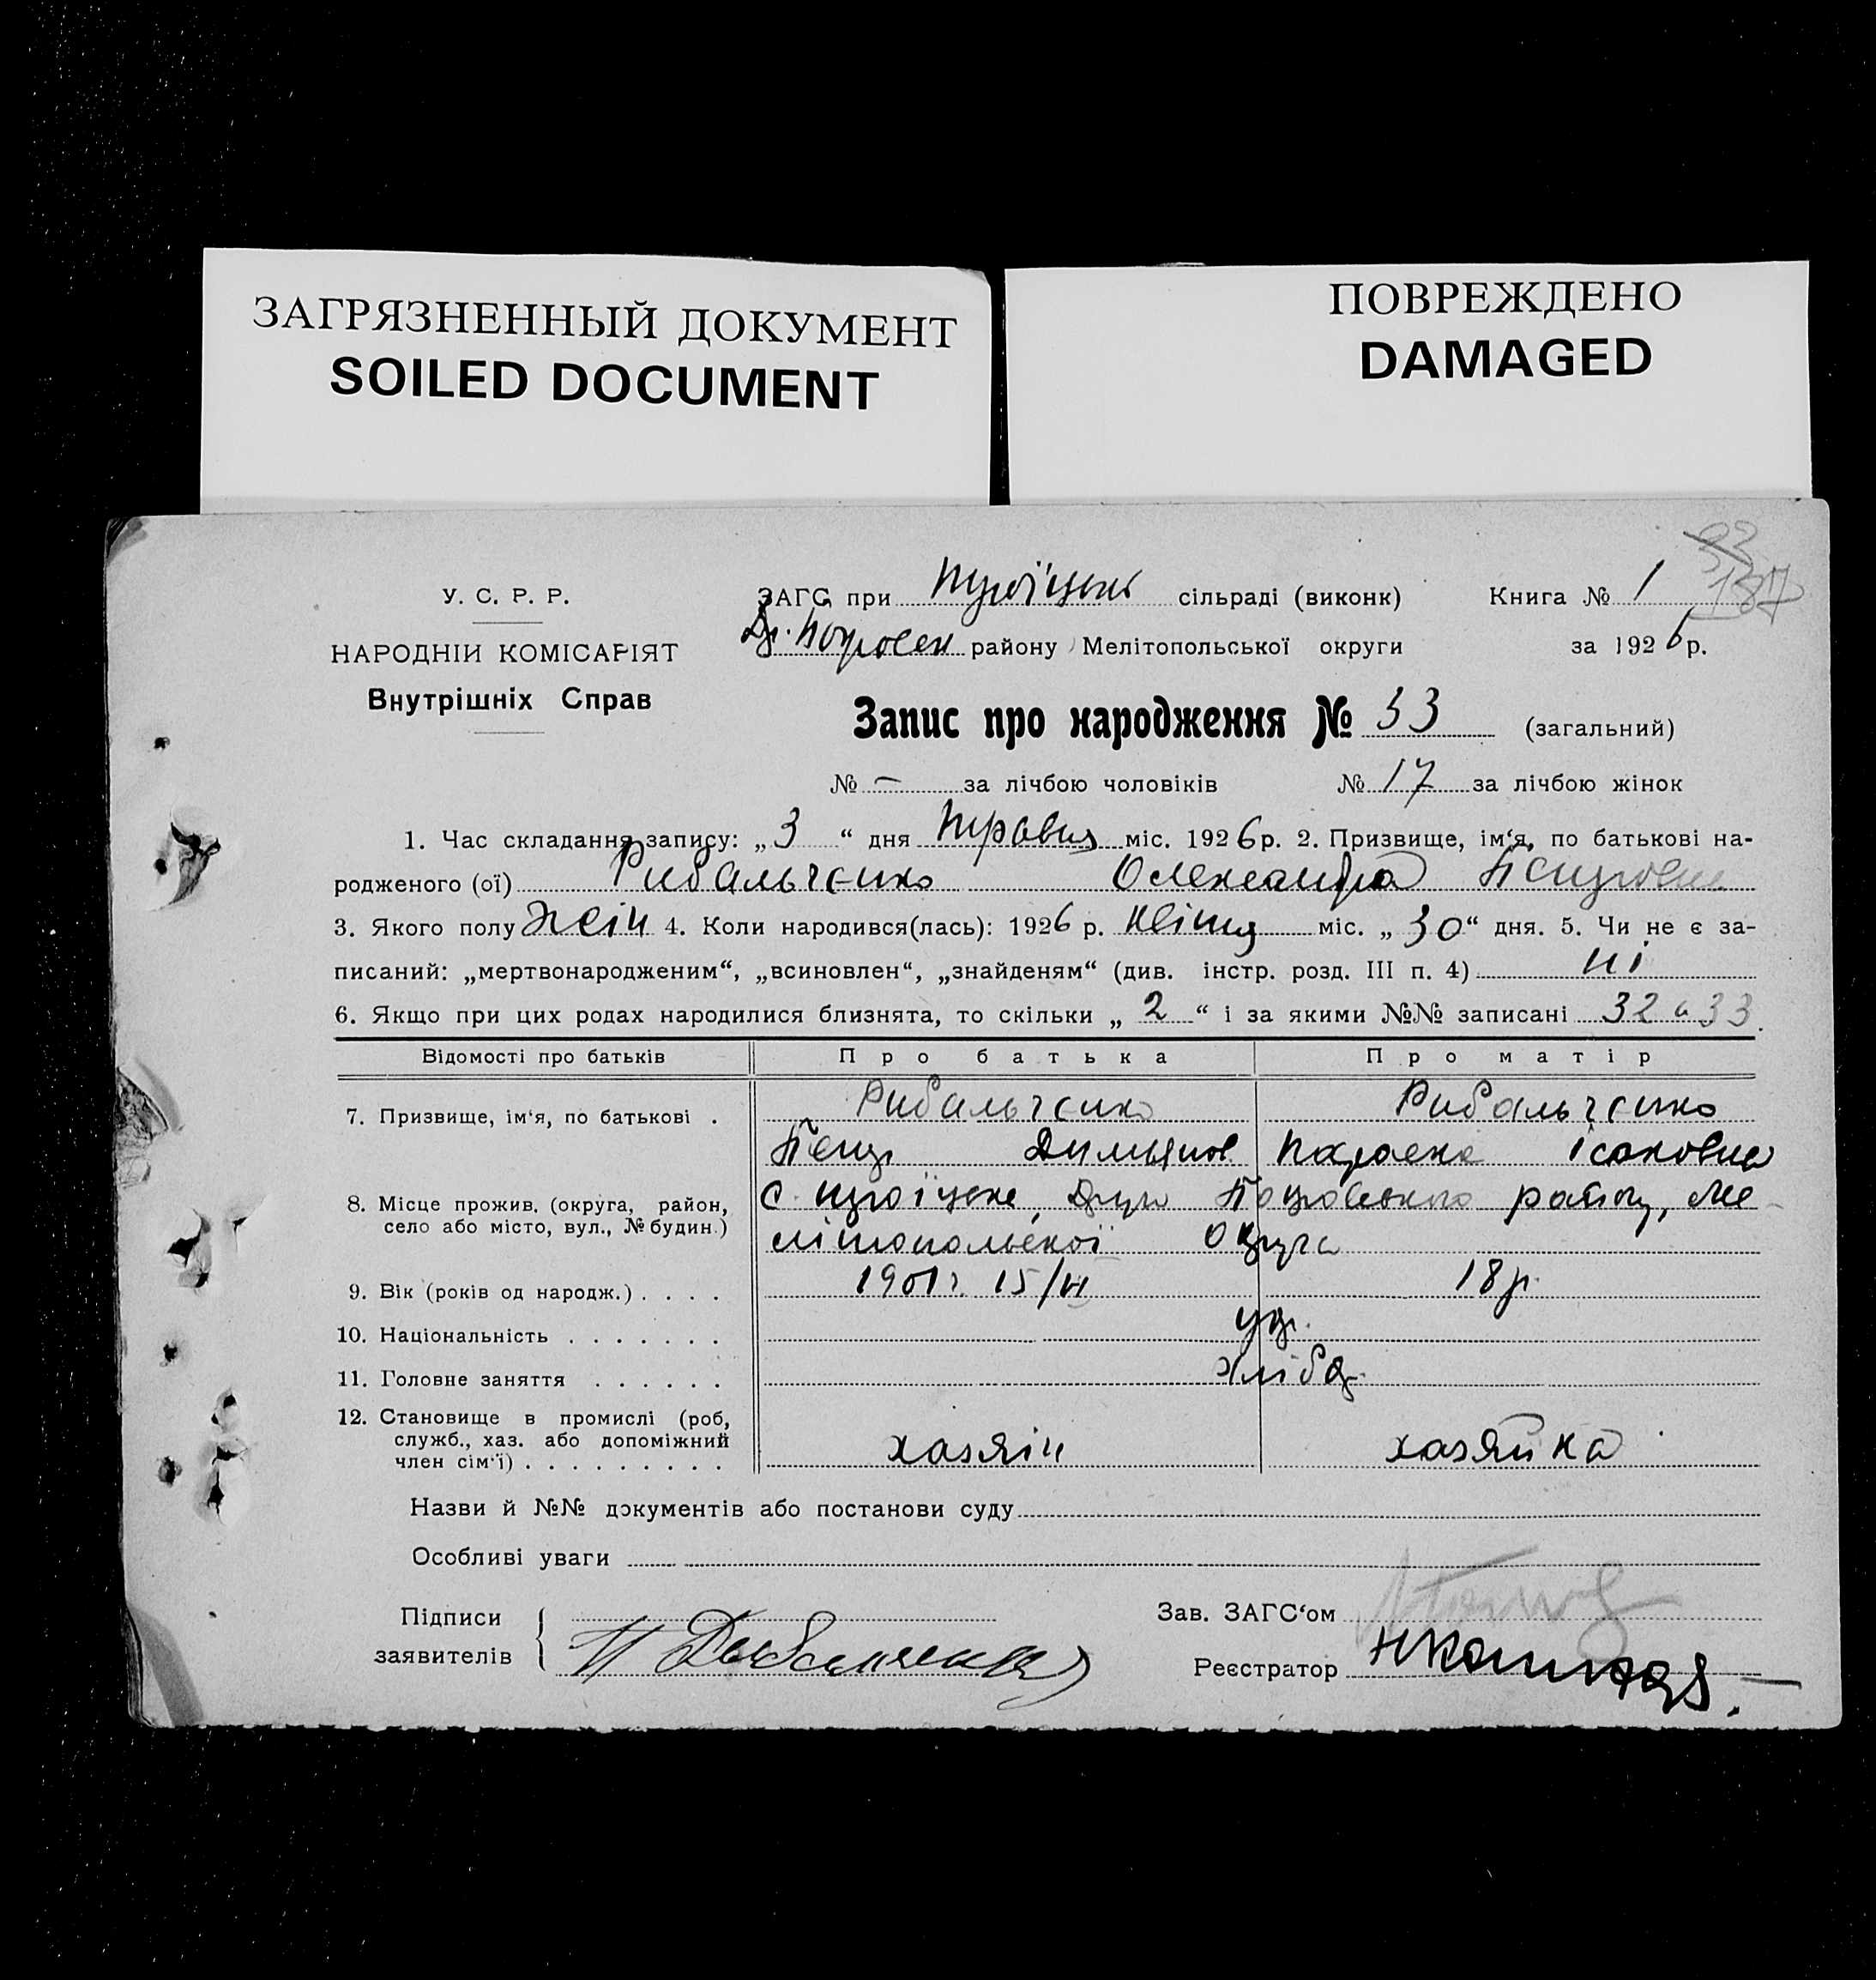 ЗАГРЯЗНЕННЫЙ ДОКУМЕНТ
SOILED DOCUMENT
ПОВРЕЖДЕНО
DAMAGED
93
187
У. С. Р. Р.
НАРОДНІЙ КОМІСАРІЯТ
Внутрішніх Справ
ЗАГС при Троїцькі сільраді (виконк) Книга № 1
Др. Покровськ району Мелітопольської округи за 1926 р.
Запис про народження № 33 (загальний)
№ – за лічбою чоловіків № 17 за лічбою жінок
1. Час складання запису: „3“ дня Травня міс. 1926 р. 2. Призвище, ім'я, по батькові на-
родженого (ої) Рибальченко Олександра Петровна
3. Якого полу жін 4. Коли народився(лась): 1926 р. Квітня міс. „30“ дня. 5. Чи не є за-
писаний: „мертвонародженим“, „всиновлен“, „знайденям“ (див. інстр. розд. III п. 4) ні
6. Якщо при цих родах народилися близнята, то скільки „2“ і за якими №№ записані 32 и 33.
Відомості про батьків Про батька Про матір
7. Призвище, ім'я, по батькові . Рибальченко Рибальченко
Петр Димьянов Параска Ісаковна
8. Місце прожив. (округа, район, село або місто, вул., № будин.) с. Троїцьке, Друго Покровського району, Ме-
літопольської округи
9. Вік (років од народж.) . . . . 1901 г. 15/VI 18 р.
10. Національність . . . . . . . укр.
11. Головне заняття . . . . . . хлібор.
12. Становище в промислі (роб,
служб., хаз. або допоміжний
член сім'ї) . . . . . . . . . хазяїн хазяйка
Назви й №№ документів або постанови суду
Особливі уваги
Підписи
заявителів
Зав. ЗАГС'ом
Реєстратор